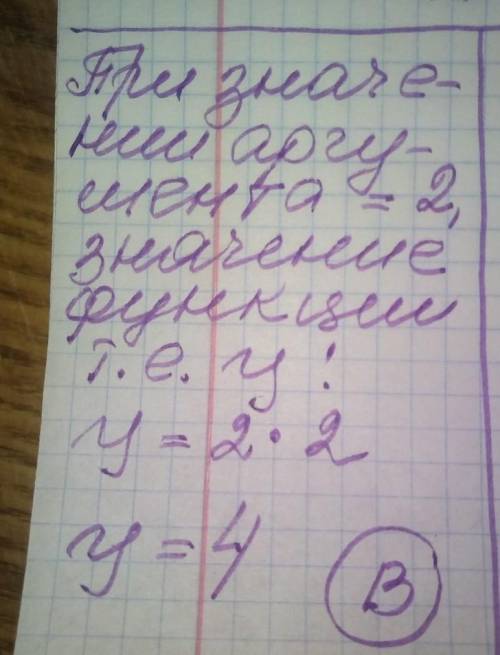 При значе-
нии аргу-
мента = 2,
значение
функции
т.е. у :
у = 2 · 2
у = 4
В